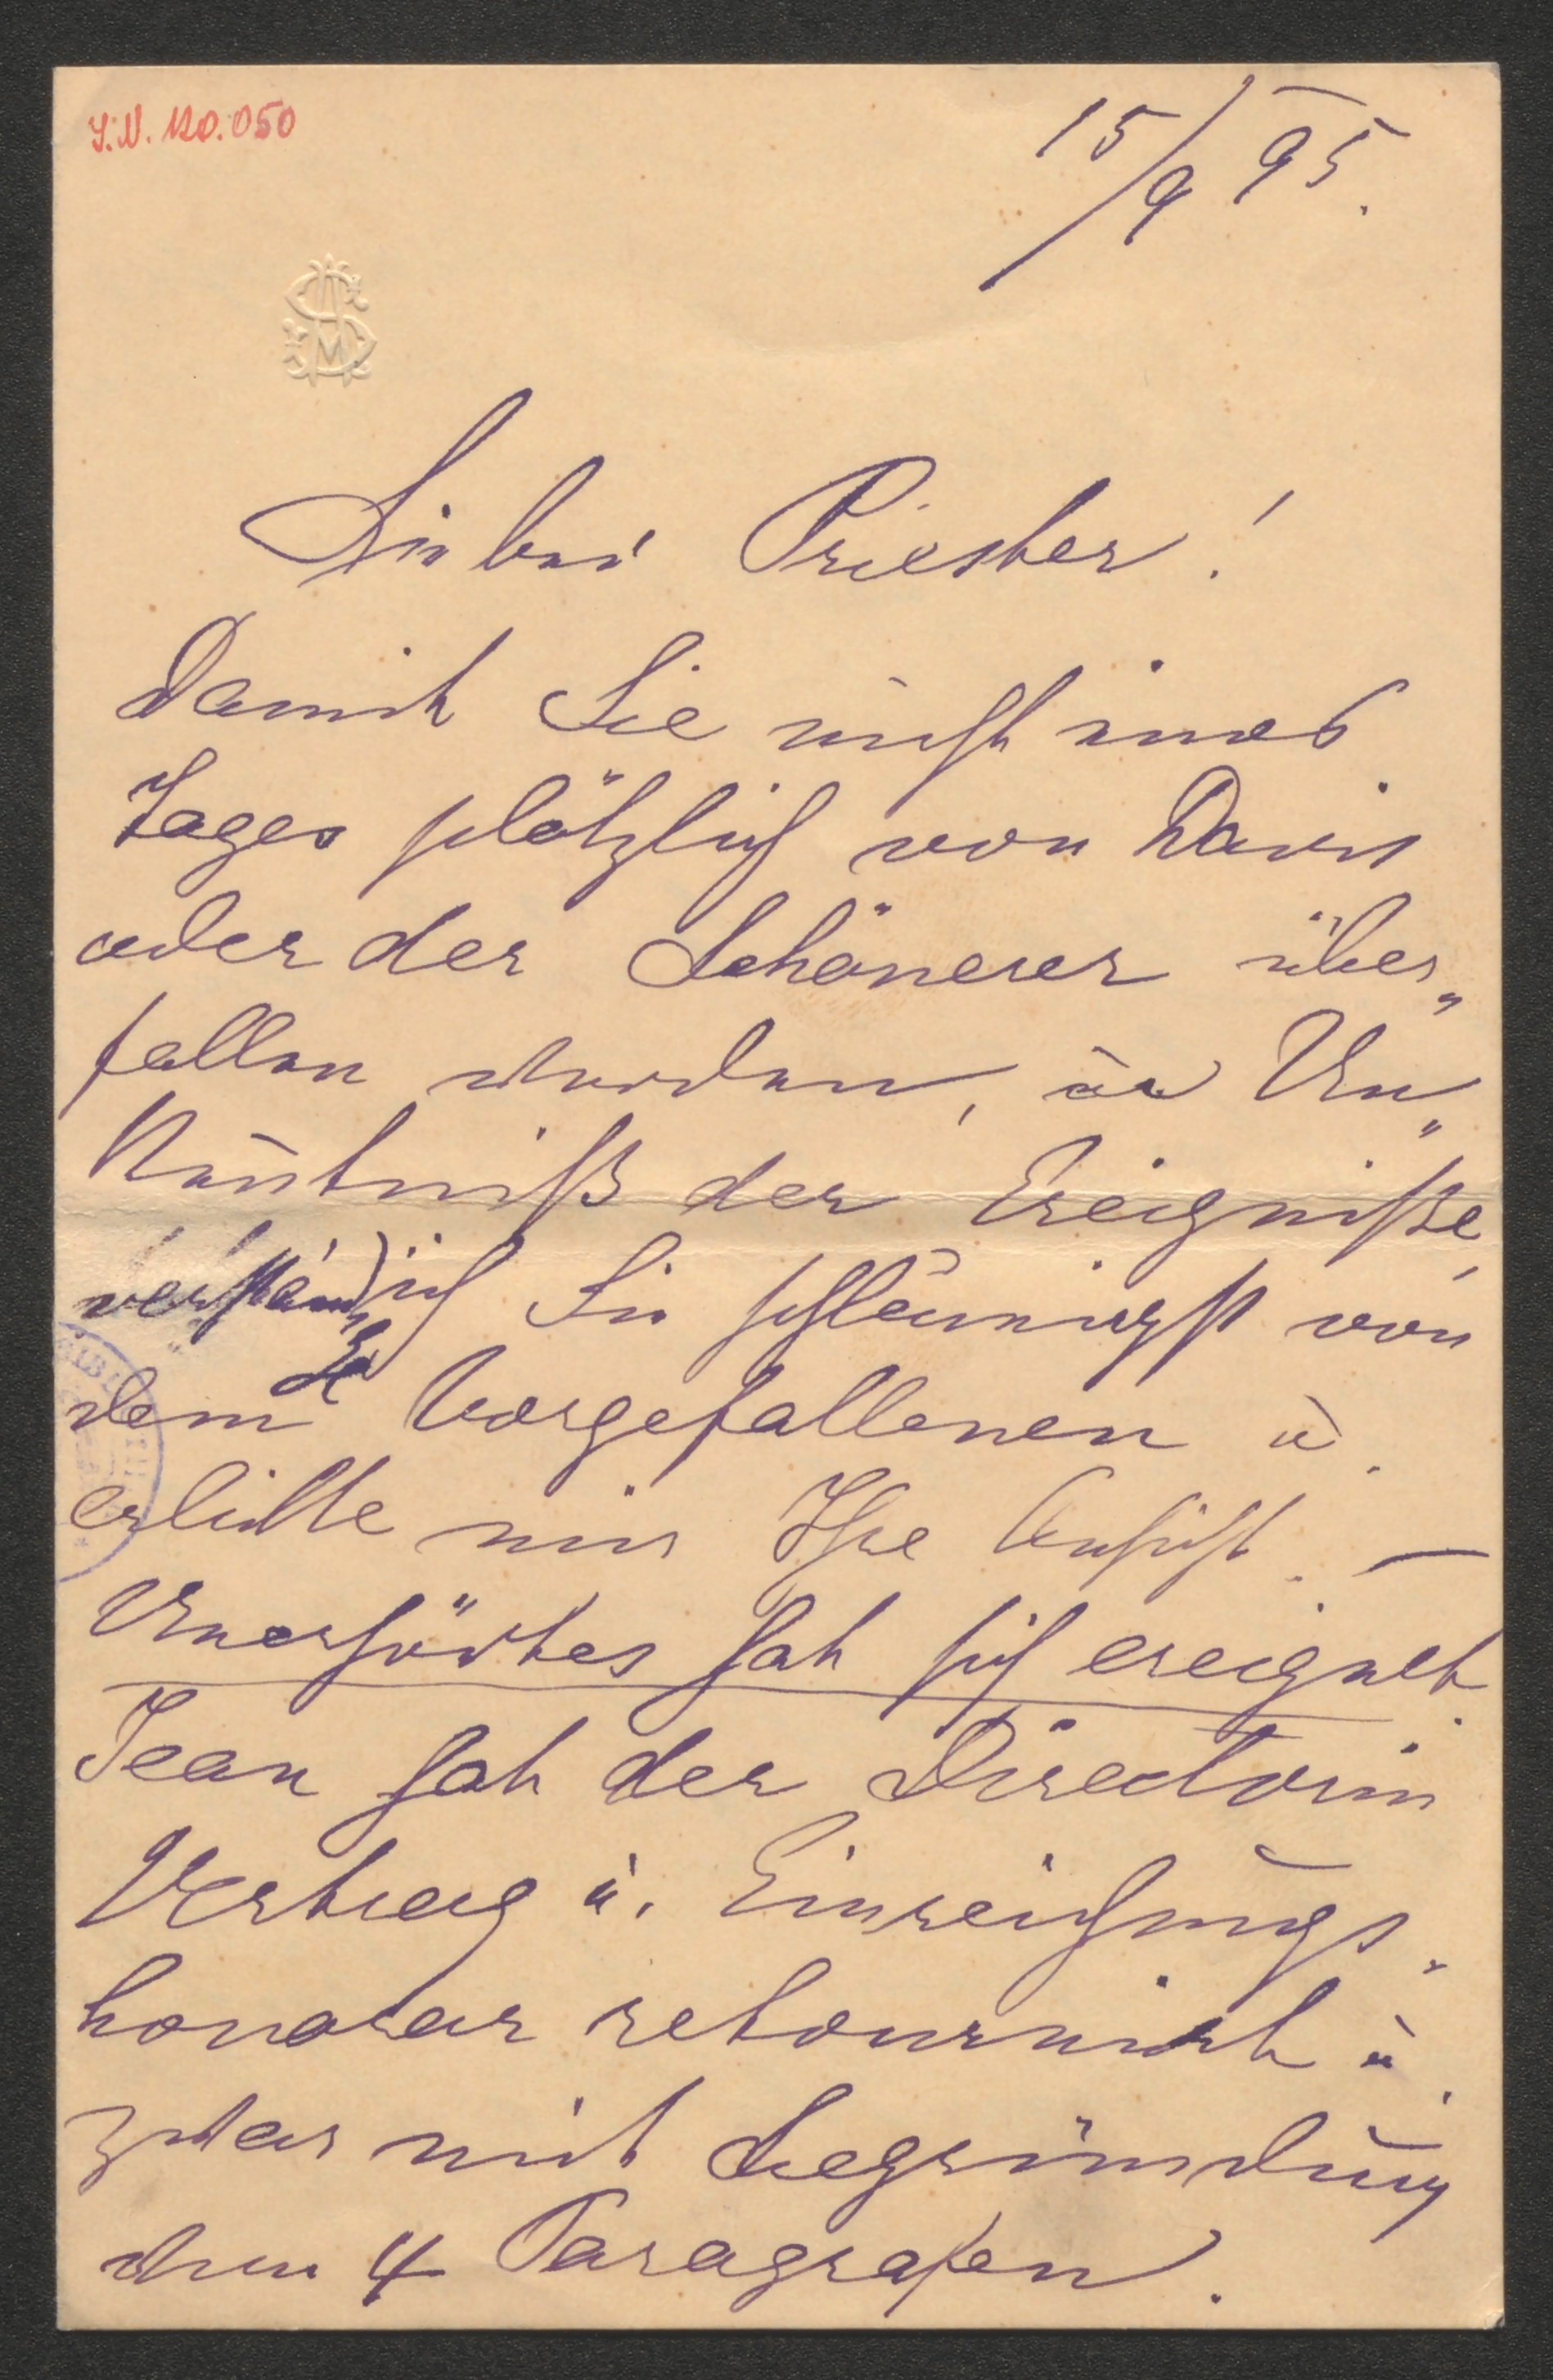 I.N. 120.050
15/9 95.
Lieber Priester!
Damit Sie nicht eines
Tages plötzlich von Davis
oder der Schönerer über„
fallen werden, in Un„
kentniß der Ereigniße,
verständige ich Sie schleunigst von
dem Vorgefallenen u.
erbitte mir Ihre Ansicht. —
Unerhörtes hat sich ereignet.
Jean hat der Directorin
Vertrag u. Einreichungs„
honorar retournirt u.
zwar mit Begründung
den 4 Paragrafen.